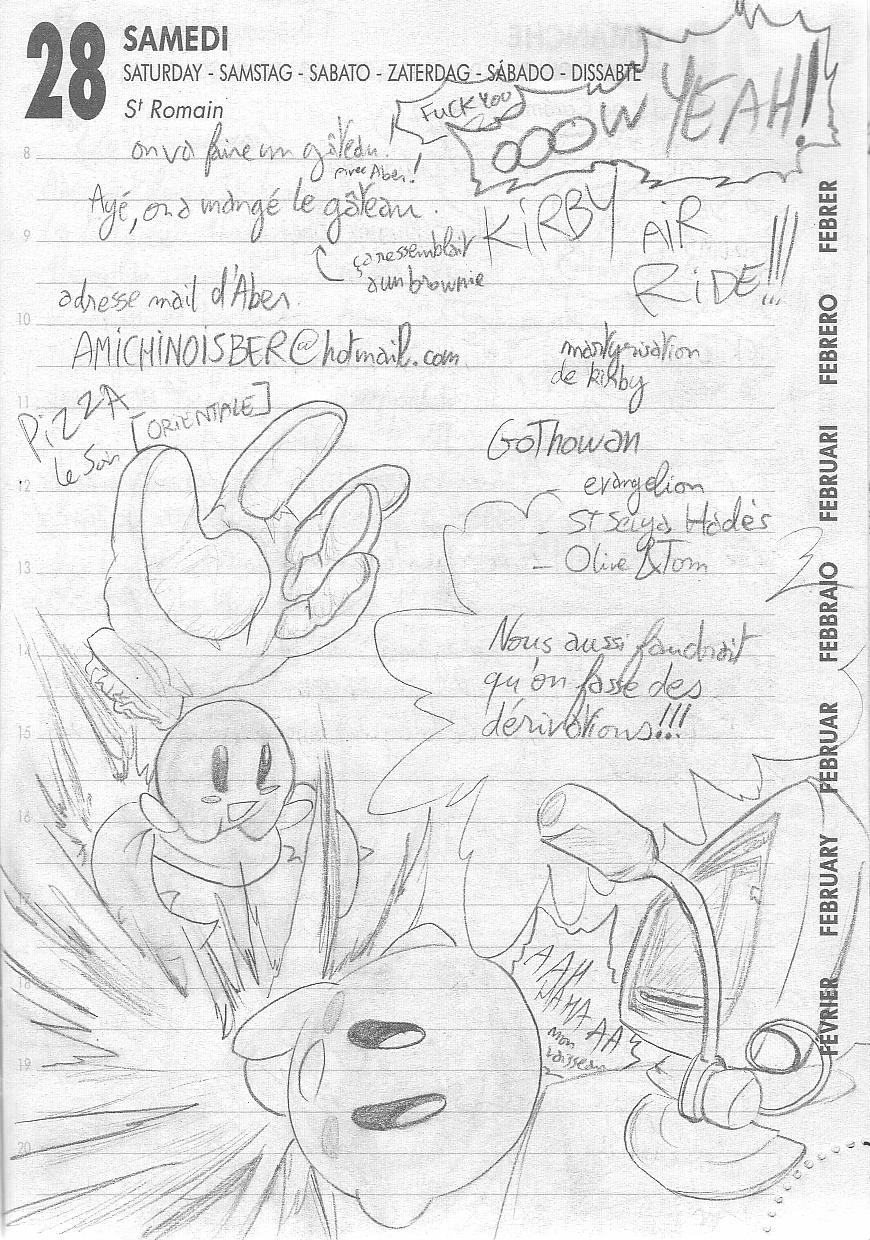 28 SAMEDI
SATURDAY - SAMSTAG - SABATO - ZATERDAG - SÁBADO - DISSABTE
St Romain
FUCK YOU
OOOW YEAH!
8
on va faire un gâteau.
avec Aber!
Ayé, on a mangé le gâteau.
9
ça ressemblait
a un brownie
KiRBY AiR
RiDE!!!
adresse mail d'Aber
10
AMiCHiNOiSBER@hotmail.com
martyrisation
de kirby
11
PiZZA
[ORiENTALE]
le Soir
GoThowan
12
- evangelion
- St Seiya Hadès
- Olive & Tom
13
2
14
Nous aussi faudrait
qu'on fasse des
dérivations!!!
15
16
17
18
AAH
WAHA
AA
mon
vaisseau
19
20
FÉVRIER FEBRUARY FEBRUAR FEBBRAIO FEBRUARI FEBRERO FEBRER